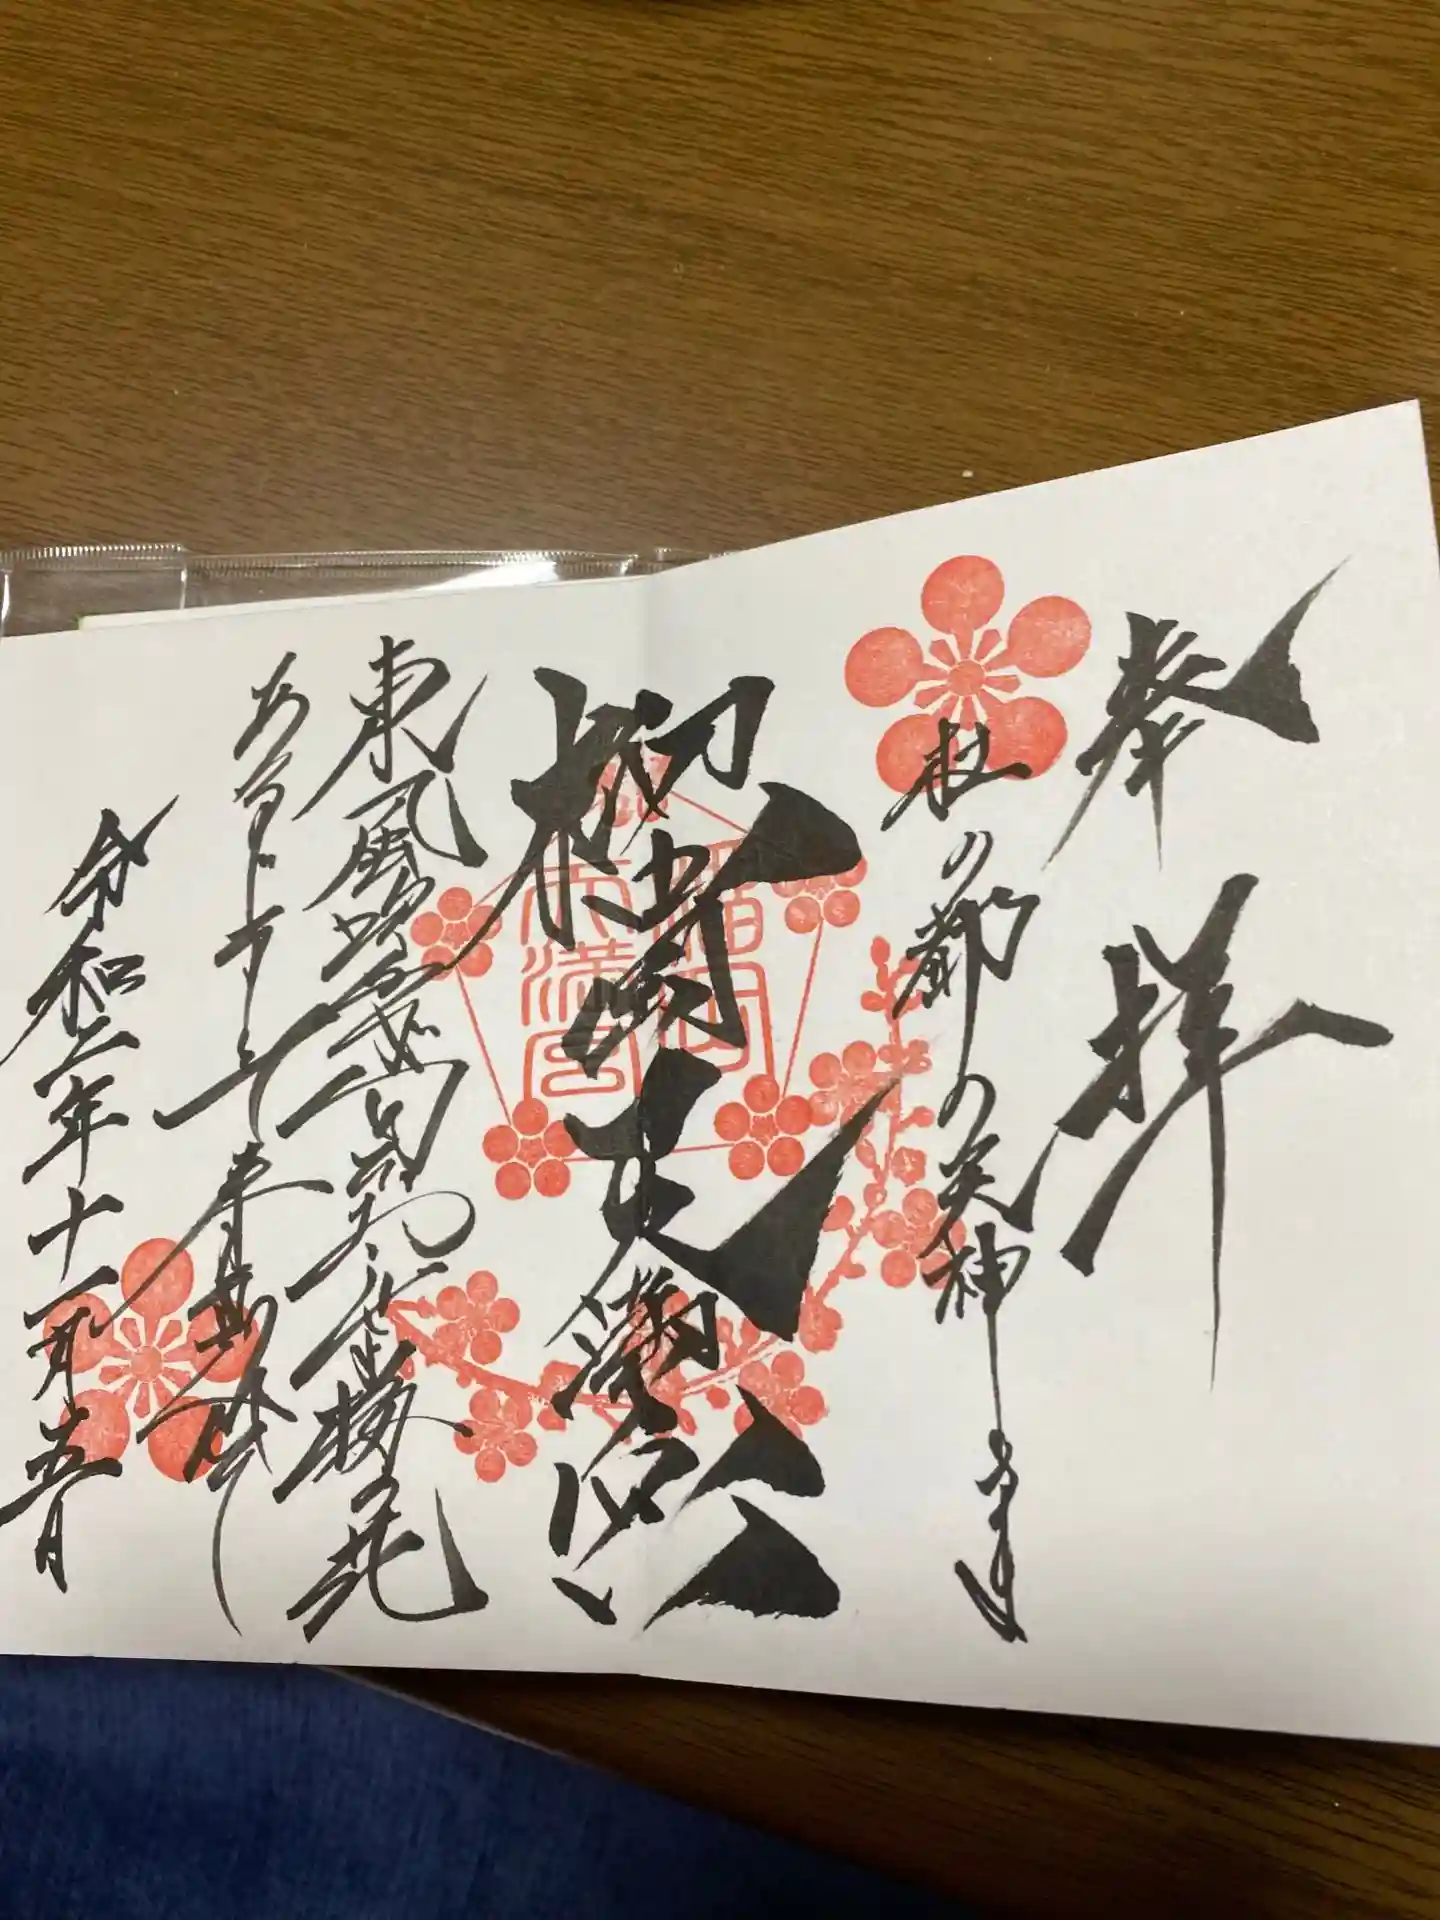 奉拝
杜の都の天神さま
榴岡天満宮
榴岡
天満宮
東風吹かば匂ひおこせよ梅の花
あるじなしとて春な忘れそ
令和二年十一月五日